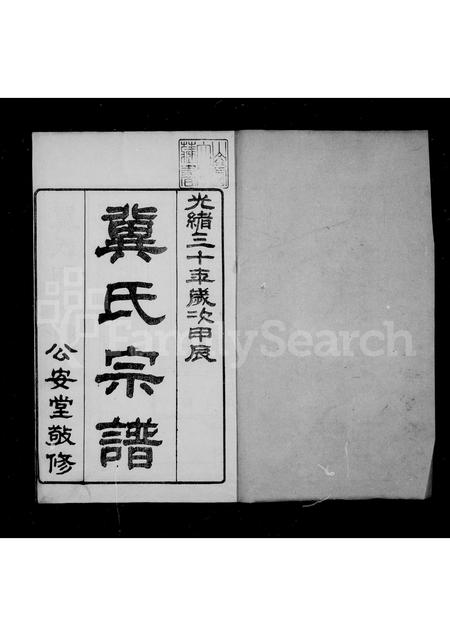 光緒三十年歲次甲辰
冀氏宗譜
公安堂敬修
FamilySearch